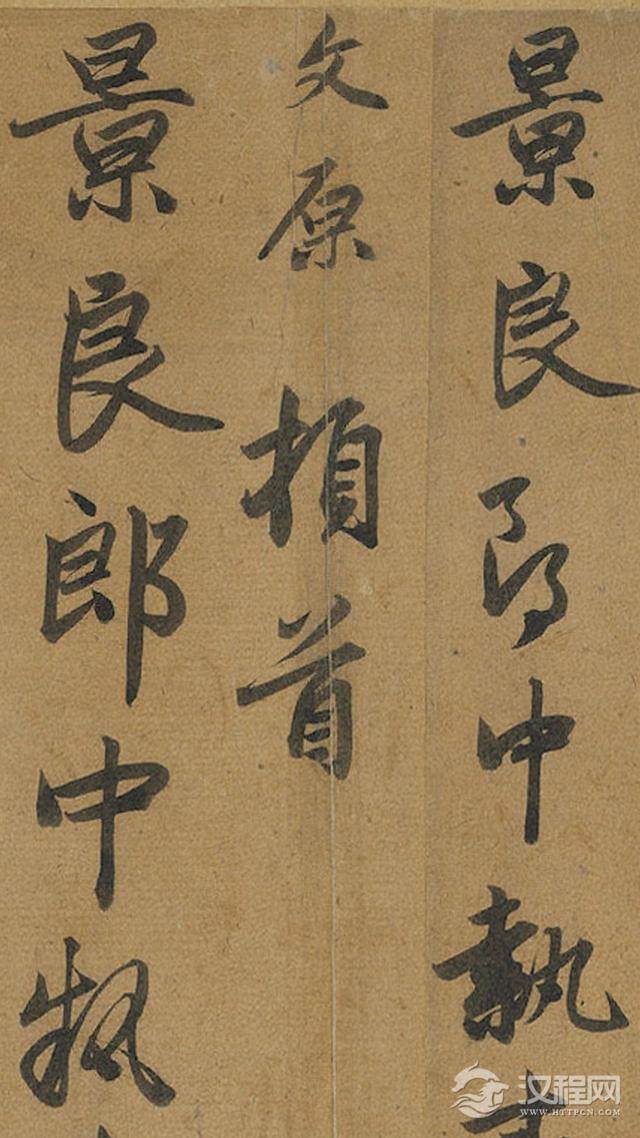 景良郎中執
文原頓首
景良郎中執
汉程网
WWW.HTTPCN.COM